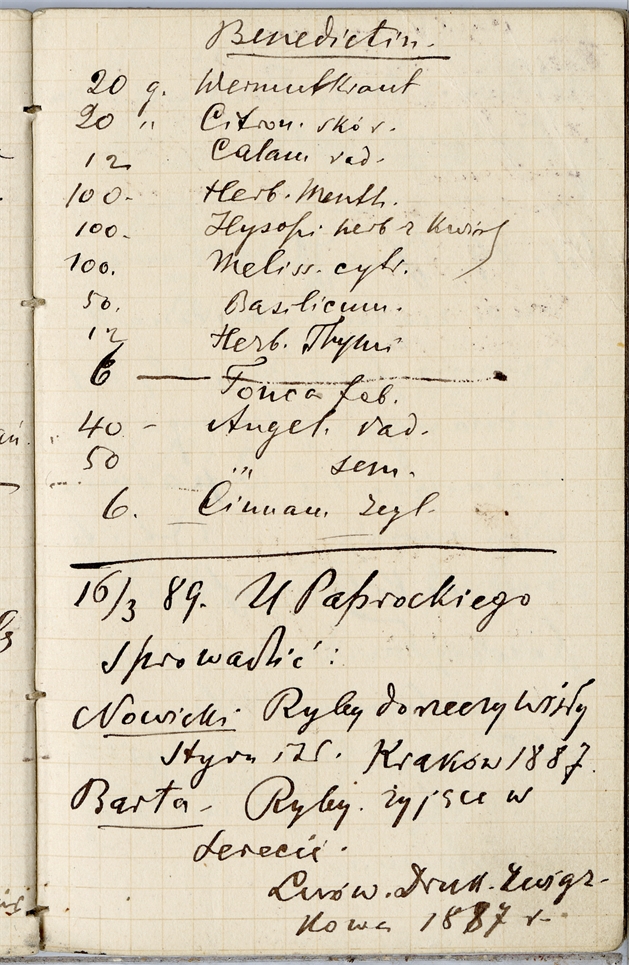 Benedictin.
20 g. Wermutkraut
20 " Citron. skór.
12 Calam rad.
100. Herb. Menth.
100. Hysopi herb z kwiat
100. Meliss. cytr.
50. Basilicum.
12 Herb. Thymi
6 — Tonca fab.
40 - Angel. rad.
50 " sem.
6. Cinnam. zeyl.
16/3 89. U Paprockiego
sprowadzić:
Nowicki Ryby dorzeczy Wisły
Styru Kraków 1887.
Barta - Ryby żyjące w
Serecie.
Lwów. Druk. Związ-
kowa 1887 r.